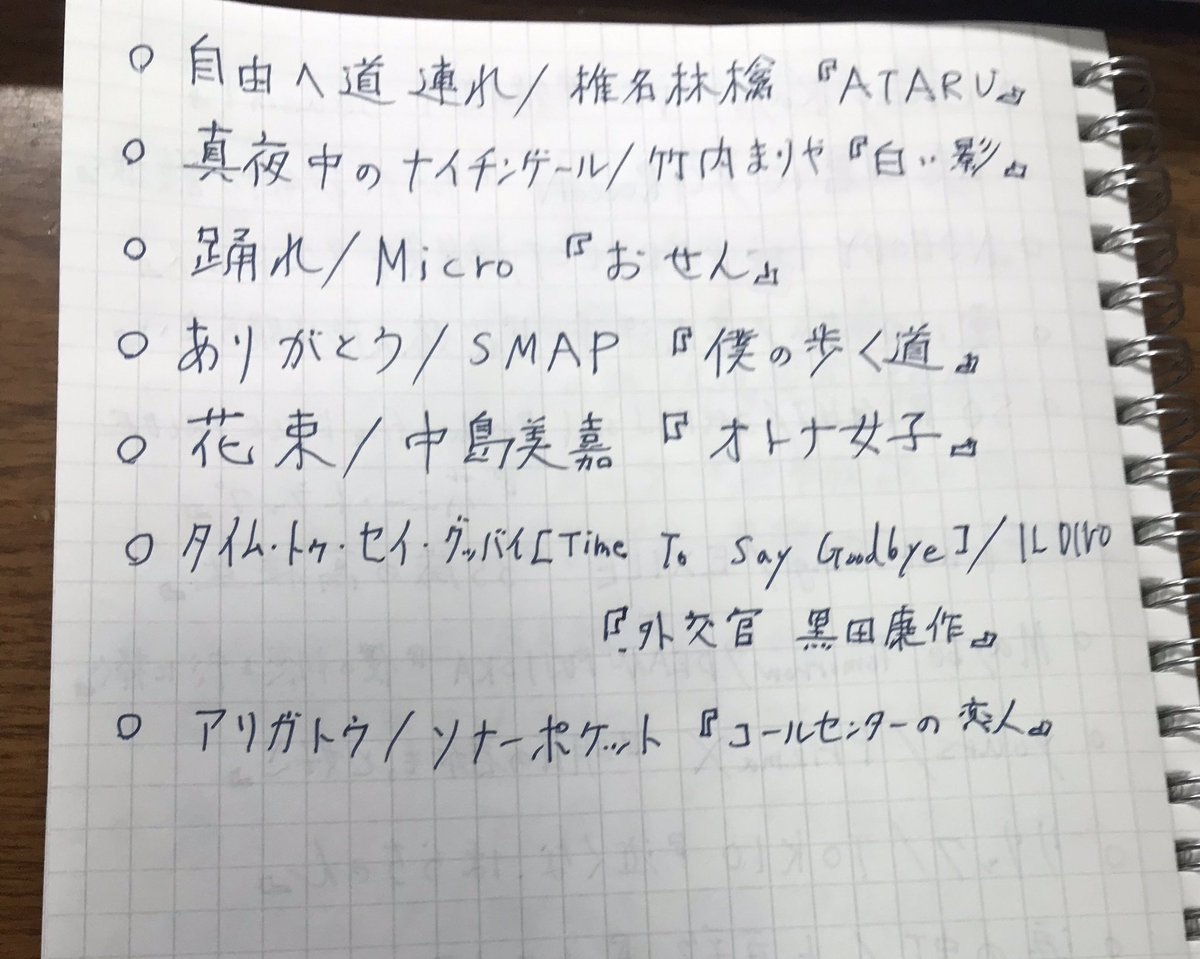 ○ 自由へ道連れ/椎名林檎『ATARU』
○ 真夜中のナイチンゲール/竹内まりや『白い影』
○ 踊れ/Micro『おせん』
○ ありがとう/SMAP『僕の歩く道』
○ 花束/中島美嘉『オトナ女子』
○ タイム・トゥ・セイ・グッバイ[Time To Say Goodbye]/IL DIVO
『外交官 黒田康作』
○ アリガトウ/ソナーポケット『コールセンターの恋人』